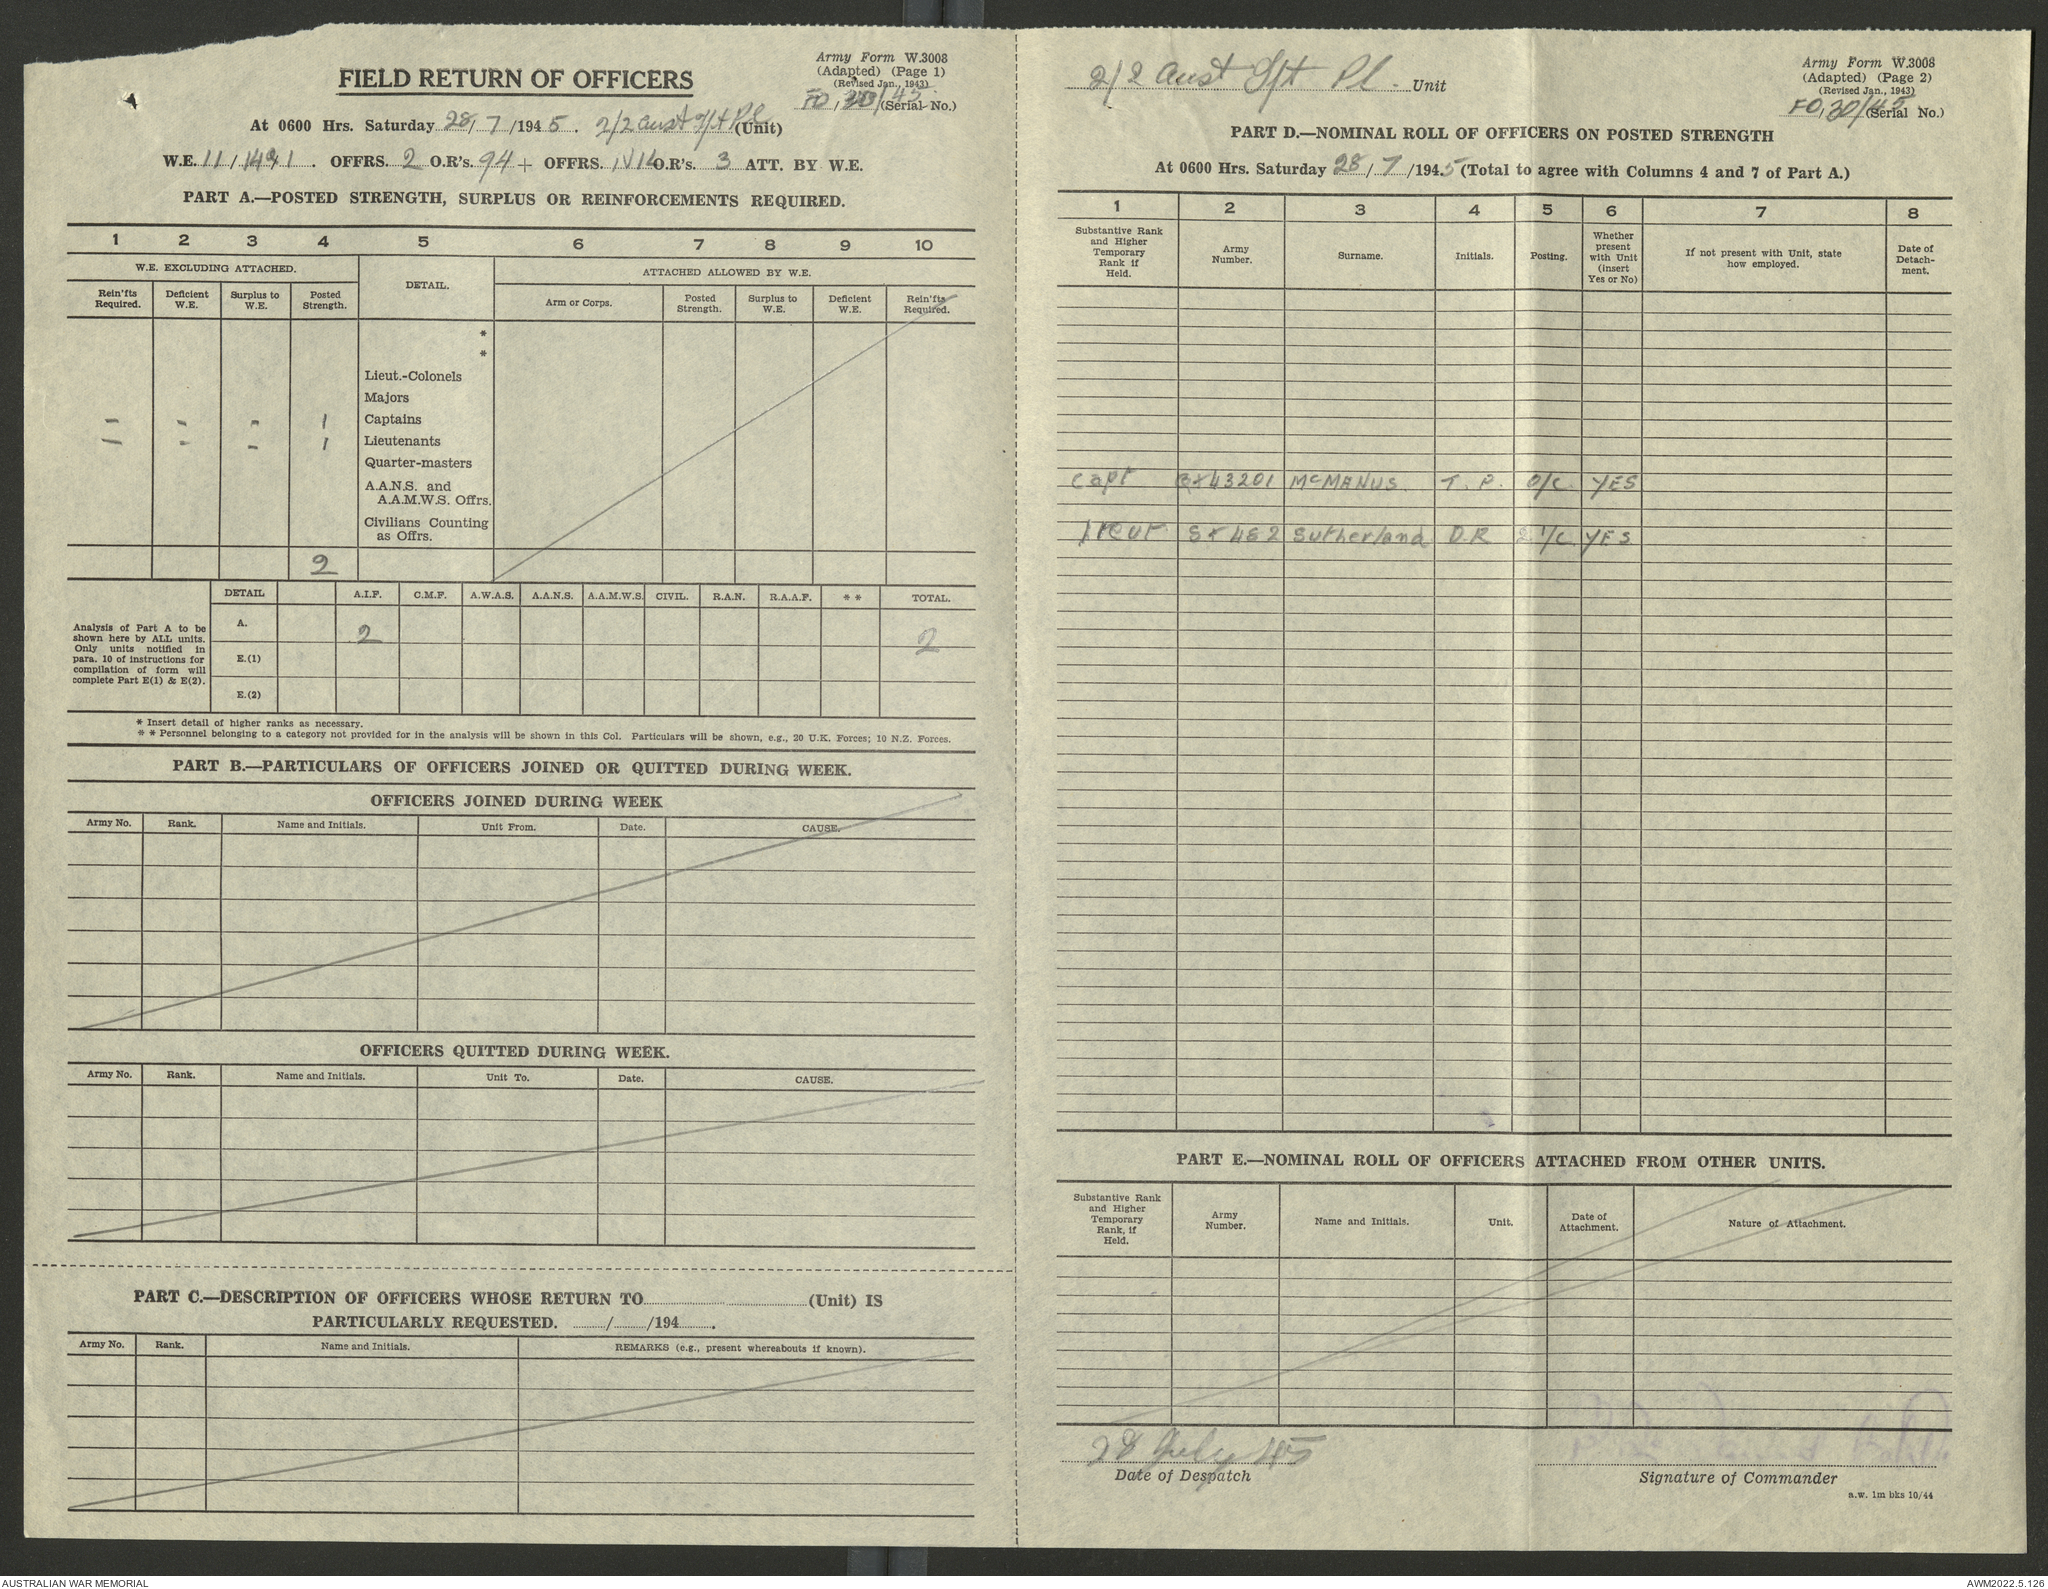 FIELD RETURN OF OFFICERS
Army Form W.3008
(Adapted) (Page 1)
(Revised Jan., 1943)
FO, 30/45 (Serial No.)
At 0600 Hrs. Saturday 28/7/1945. 2/2 Aust Pl (Unit)
W.E. 11/1491. OFFRS. 2 O.R's. 94 + OFFRS. O.R's. 3 ATT. BY W.E.
PART A.—POSTED STRENGTH, SURPLUS OR REINFORCEMENTS REQUIRED.
1 2 3 4 5 6 7 8 9 10
W.E. EXCLUDING ATTACHED.
DETAIL.
ATTACHED ALLOWED BY W.E.
Rein'fts Required.
Deficient W.E.
Surplus to W.E.
Posted Strength.
Arm or Corps.
Posted Strength.
Surplus to W.E.
Deficient W.E.
Rein'fts Required.
*
*
Lieut.-Colonels
Majors
- - - 1 Captains
- - - 1 Lieutenants
Quarter-masters
A.A.N.S. and
A.A.M.W.S. Offrs.
Civilians Counting
as Offrs.
2
DETAIL A.I.F. C.M.F. A.W.A.S. A.A.N.S. A.A.M.W.S. CIVIL. R.A.N. R.A.A.F. * * TOTAL.
Analysis of Part A to be
shown here by ALL units.
Only units notified in
para. 10 of instructions for
compilation of form will
complete Part E(1) & E(2).
A. 2 2
E.(1)
E.(2)
* Insert detail of higher ranks as necessary.
* * Personnel belonging to a category not provided for in the analysis will be shown in this Col. Particulars will be shown, e.g., 20 U.K. Forces; 10 N.Z. Forces.
PART B.—PARTICULARS OF OFFICERS JOINED OR QUITTED DURING WEEK.
OFFICERS JOINED DURING WEEK
Army No. Rank. Name and Initials. Unit From. Date. CAUSE.
OFFICERS QUITTED DURING WEEK.
Army No. Rank. Name and Initials. Unit To. Date. CAUSE.
PART C.—DESCRIPTION OF OFFICERS WHOSE RETURN TO (Unit) IS
PARTICULARLY REQUESTED. / /194 .
Army No. Rank. Name and Initials. REMARKS (e.g., present whereabouts if known).
2/2 Aust Pl. Unit
Army Form W.3008
(Adapted) (Page 2)
(Revised Jan., 1943)
FO, 30/45 (Serial No.)
PART D.—NOMINAL ROLL OF OFFICERS ON POSTED STRENGTH
At 0600 Hrs. Saturday 28/7/1945 (Total to agree with Columns 4 and 7 of Part A.)
1 2 3 4 5 6 7 8
Substantive Rank and Higher Temporary Rank if Held.
Army Number.
Surname.
Initials.
Posting.
Whether present with Unit (insert Yes or No)
If not present with Unit, state how employed.
Date of Detach-ment.
Capt McMANUS. T. P. O/C. YES
Lieut Sutherland D.R 2 I/C YES
PART E.—NOMINAL ROLL OF OFFICERS ATTACHED FROM OTHER UNITS.
Substantive Rank and Higher Temporary Rank, if Held.
Army Number.
Name and Initials.
Unit.
Date of Attachment.
Nature of Attachment.
28 July 45
Date of Despatch
Signature of Commander
a.w. 1m bks 10/44
AUSTRALIAN WAR MEMORIAL
AWM2022.5.126